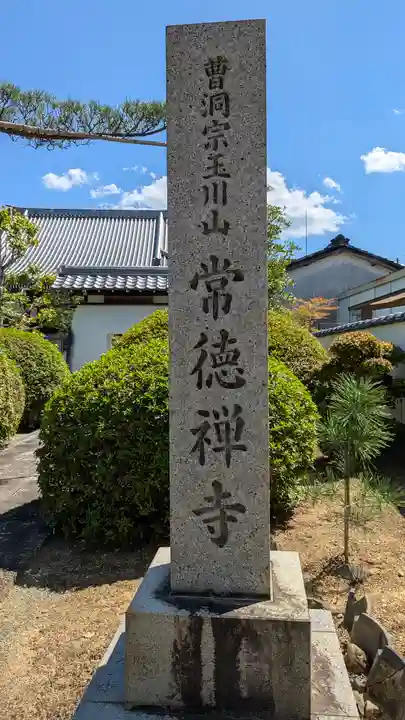 曹洞宗玉川山常徳禅寺